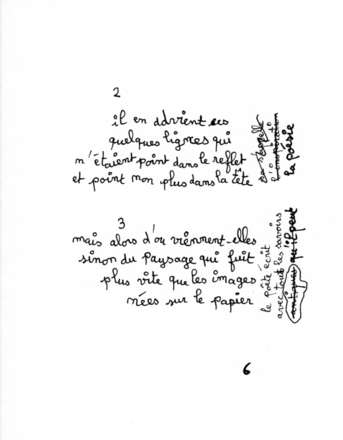 2
il en advient ces
quelques lignes qui
n'étaient point dans le reflet
et point non plus dans la tête
ça s'appelle
la poésie
3
mais alors d'où viennent-elles
sinon du paysage qui fuit
plus vite que les images
nées sur le papier
le poète écrit
avec tous les savoirs
qu'il peut
6